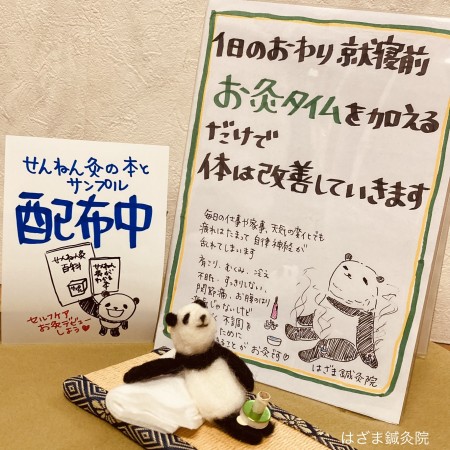 せんねん灸の本と
サンプル
配布中
せんねん灸
百科
セルフケア
お灸デビュー
しよう♥
1日のおわり 就寝前
お灸タイムを加える
だけで
体は改善していきます
毎日の仕事や家事、天気の変化でも
疲れはたまって自律神経が
乱れてしまいます
肩こり、むくみ、冷え
不眠、すっきりしない、
関節痛、お腹はり
不調を
ために
ことがお灸です
はざま鍼灸院
はざま鍼灸院